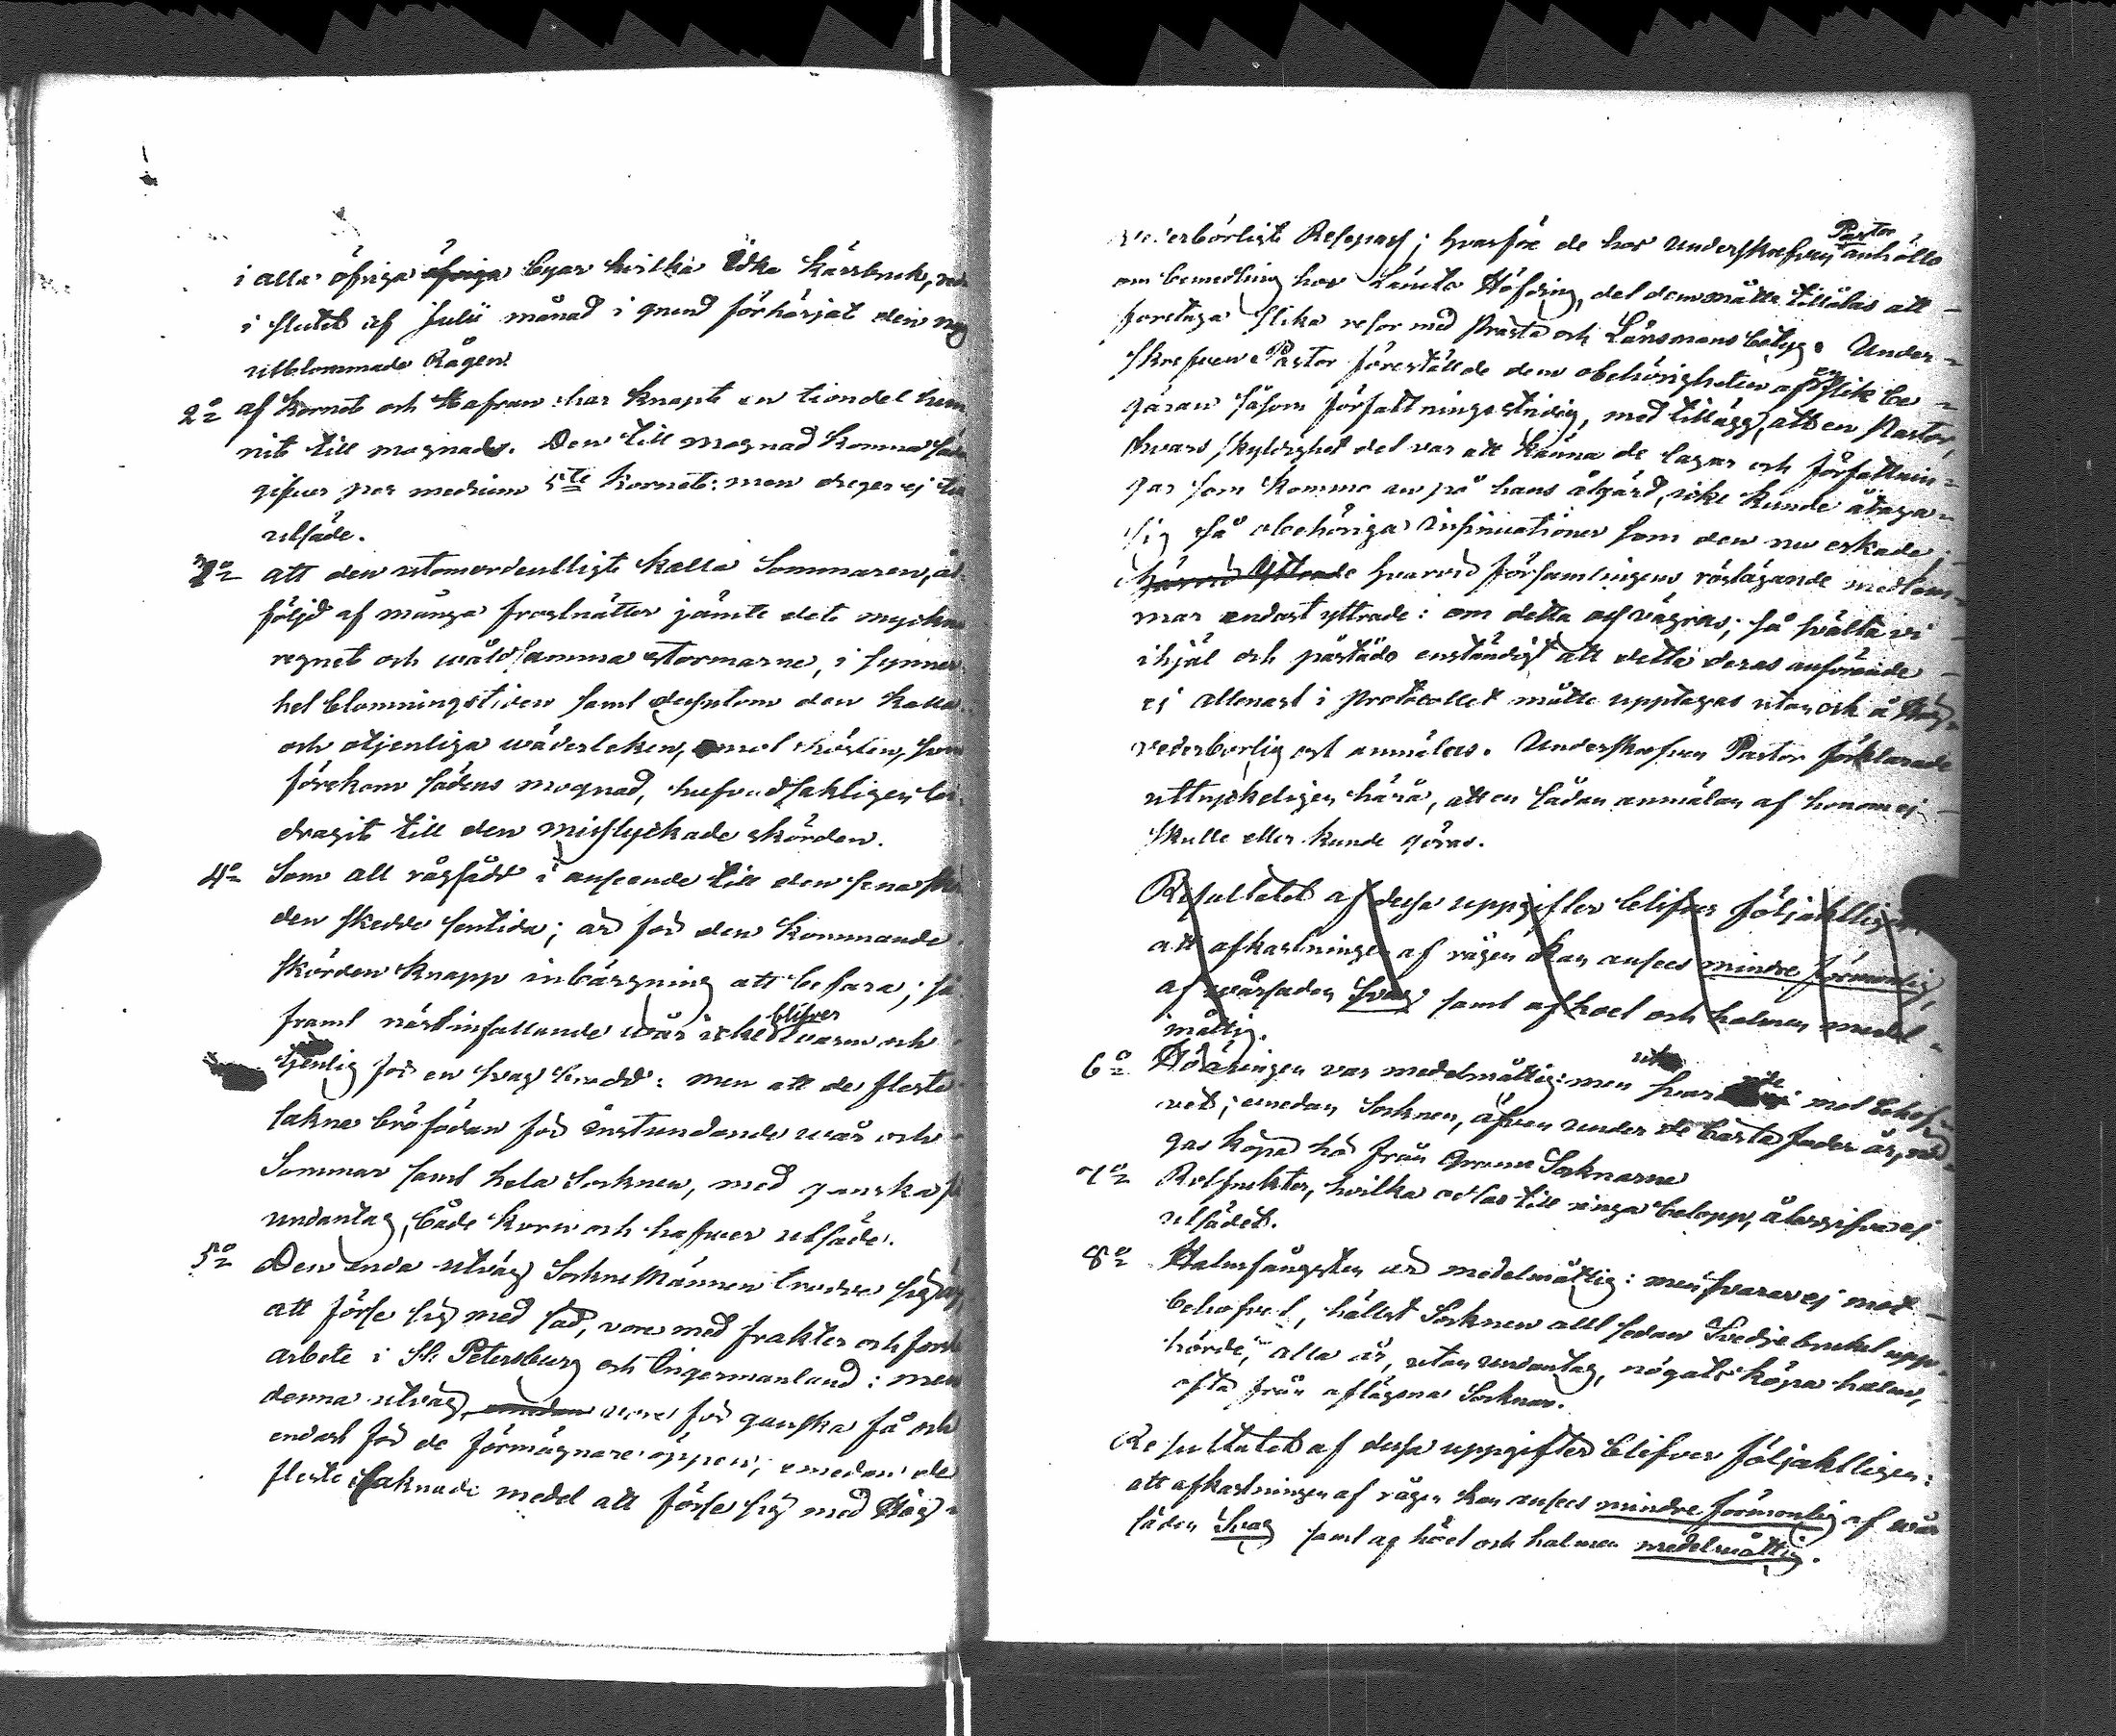 i alla öfriga öfriga byar hvilka idka kärrbruk, red
i slutet af Julii månad i grund förhärjat den nyss
utblommade Rågen.
2o af Kornet och Hafran har knapt en tiondel hun
nit till mognad. Den till mognad komna säde
gifver per medium 5te Kornet: men dreger ej till
utsäde.
3o att den utomordentligt kalla Sommaren, åt-
följd af många frostnätter jämte det myckna
regnet och wåldsamma stormarne, i synner-
het blomningstiden samt dessutom den kalla
och otjenliga wäderleken, emot hösten, som
förekom sädens mognad, hufvudsakligen bi-
dragit till den misslyckade skörden.
4o Som all rågsådd i anseende till den sena skör
den skedde sentida; är för den kommande
skörden knapp inbärgning att befara; så
framt nästinfallande wår icke blifver warm och
tjenlig för en svag brodd: men att de fleste
sakna brödfödan för instundande wår och
Sommar samt hela Socknen, med ganska få
undantag, både korn och hafver utsäde.
5o Den enda utväg SockneMännen trodde sig äga
att förse sig med säd, vore med frakter och
arbete i St. Petersburg och Ingermanland: men
denna utväg, emedan vore för ganska få och
endast för de förmågnare öppen; emedan de
fleste saknade medel att förse sig med Hög-
vederbörligt Respass; hvarföre de hos Underskrefven Pastor anhöllo
om bemedling hos Länets Höfding, det dem måtte tillåtas att
företaga slika resor med Prästa och Länsmans betyg. Under-
skrefven Pastor föreställde dem obehörigheten af en slik be-
gäran såsom författningsstridig, med tillägg, att en Pastor,
hvars skyldighet det var att känna de lagar och författnin-
gar som komma an på hans åtgärd, icke kunde åtaga
sig så obehöriga insinuationer som den nu eskade;
härvid Yttrade hvarvid församlingens röstägande medlem-
mar endast yttrade: om detta oss vägras; så svälta vi
ihjäl och påstodo enständigt att detta deras anförande
ej allenast i Protocollet måtte upptagas utan ock å Hög-
vederbörlig ort anmälas. Underskrefven Pastor förklarade
uttryckeligen härå, att en sådan anmälan af honom ej
skulle eller kunde göras.
Resultatet af dessa uppgifter blifver följaktligen:
att afkastningen af rågen kan anses mindre förmonlig,
af wårsäden svag samt af höet och halmen medel-
måttig.
6o Höbäringen var medelmåttig: men svarade ej mot behof-
vet; emedan Socknen, äfven under de bästa foder år, nöd-
gas köpa hö från Granne Socknarne
7o Rotfrukter, hvilka odlas till ringa belopp, återgifva ej
utsädet.
8o Halmfångsten är medelmåttig: men svarar ej mot
behofvet, hällst Socknen allt sedan Svedjebruket upp-
hörde, alla år, utan undantag, nögats köpa halm,
ofta från aflägsna Socknar.
Resultatet af dessa uppgifter blifver följaktligen:
att afkastningen af rågen kan anses mindre förmonlig af wår
säden Svag samt af höet och halmen medelmåttig.